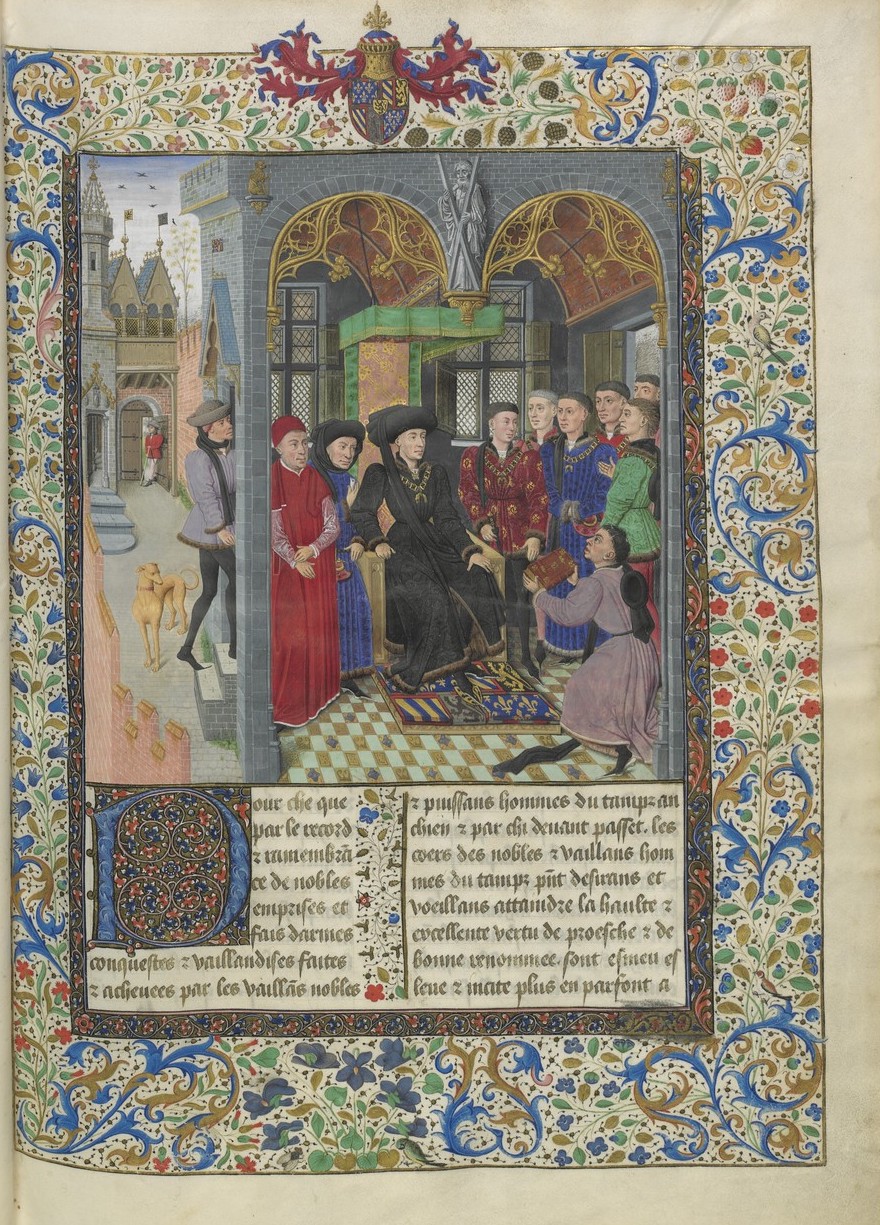 Pour che que
par le record
⁊ ramembrā
ce de nobles
emprises et
fais darmes
conquestes ⁊ vaillandises faites
⁊ acheuees par les vaillãs nobles
⁊ puissans hommes du tampz an
chien ⁊ par chi deuant passet. les
coers des nobles ⁊ vaillans hom
mes du tampz pñt desirans et
voeillans attaindre la haulte ⁊
excellente vertu de proesche ⁊ de
bonne renommee. sont esmeu es
leue ⁊ incite plus en parfont a